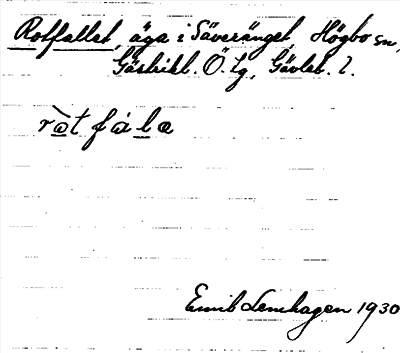 Rotfallet, äga i Säveränget, Högbo sn,
Gästrikl. Ö. tg, Gävleb. l.
ròt fála
Emil Lenhagen 1930